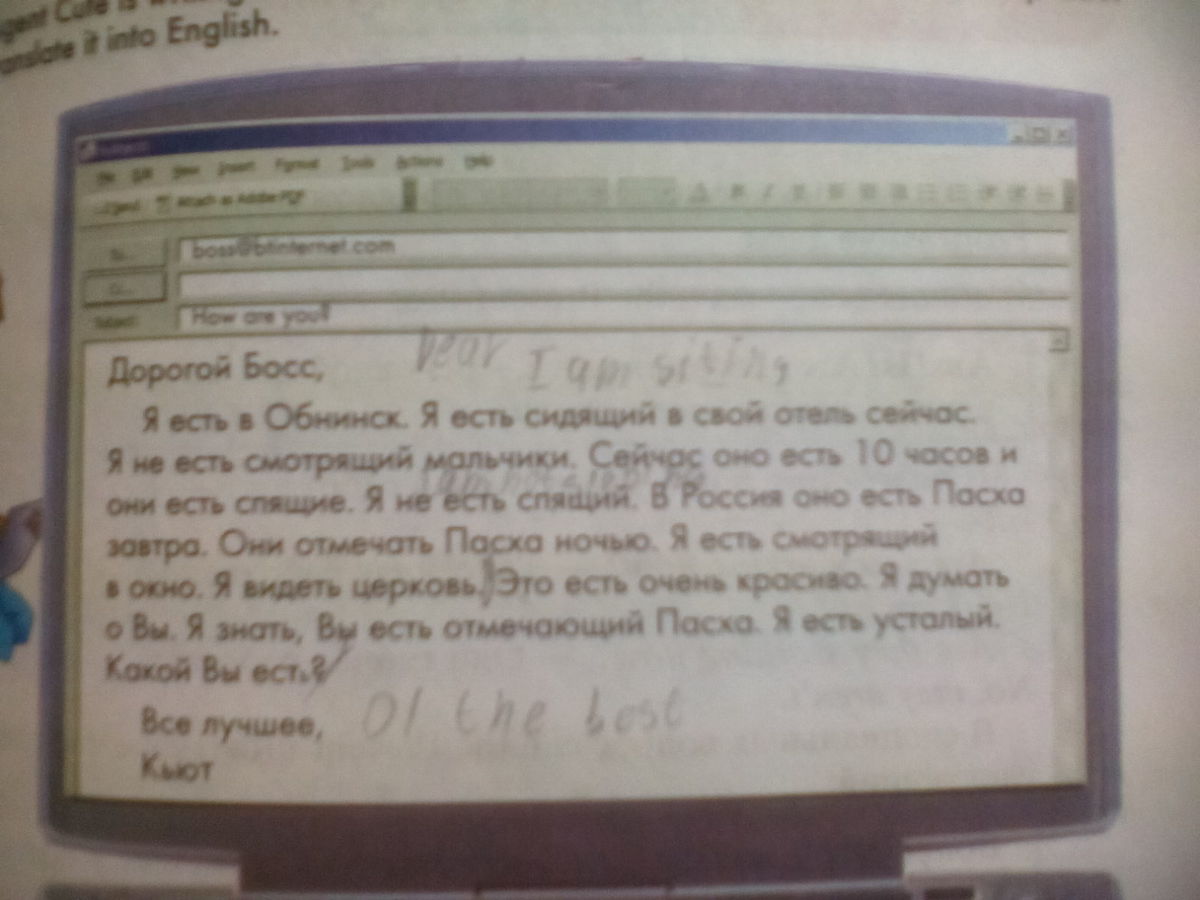 gent Cute is
anslate it into English.
Edit View Insert Format Tools Actions Help
Attach as Adobe PDF
To...
boss@btinternet.com
Cc...
Subject: How are you?
Dear I am siting
Дорогой Босс,
Я есть в Обнинск. Я есть сидящий в свой отель сейчас.
Я не есть смотрящий мальчики. Сейчас оно есть 10 часов и
они есть спящие. Я не есть спящий. В Россия оно есть Пасха
завтра. Они отмечать Пасха ночью. Я есть смотрящий
в окно. Я видеть церковь. Это есть очень красиво. Я думать
о Вы. Я знать, Вы есть отмечающий Пасха. Я есть усталый.
Какой Вы есть?
Все лучшее, Ol the best
Кьют